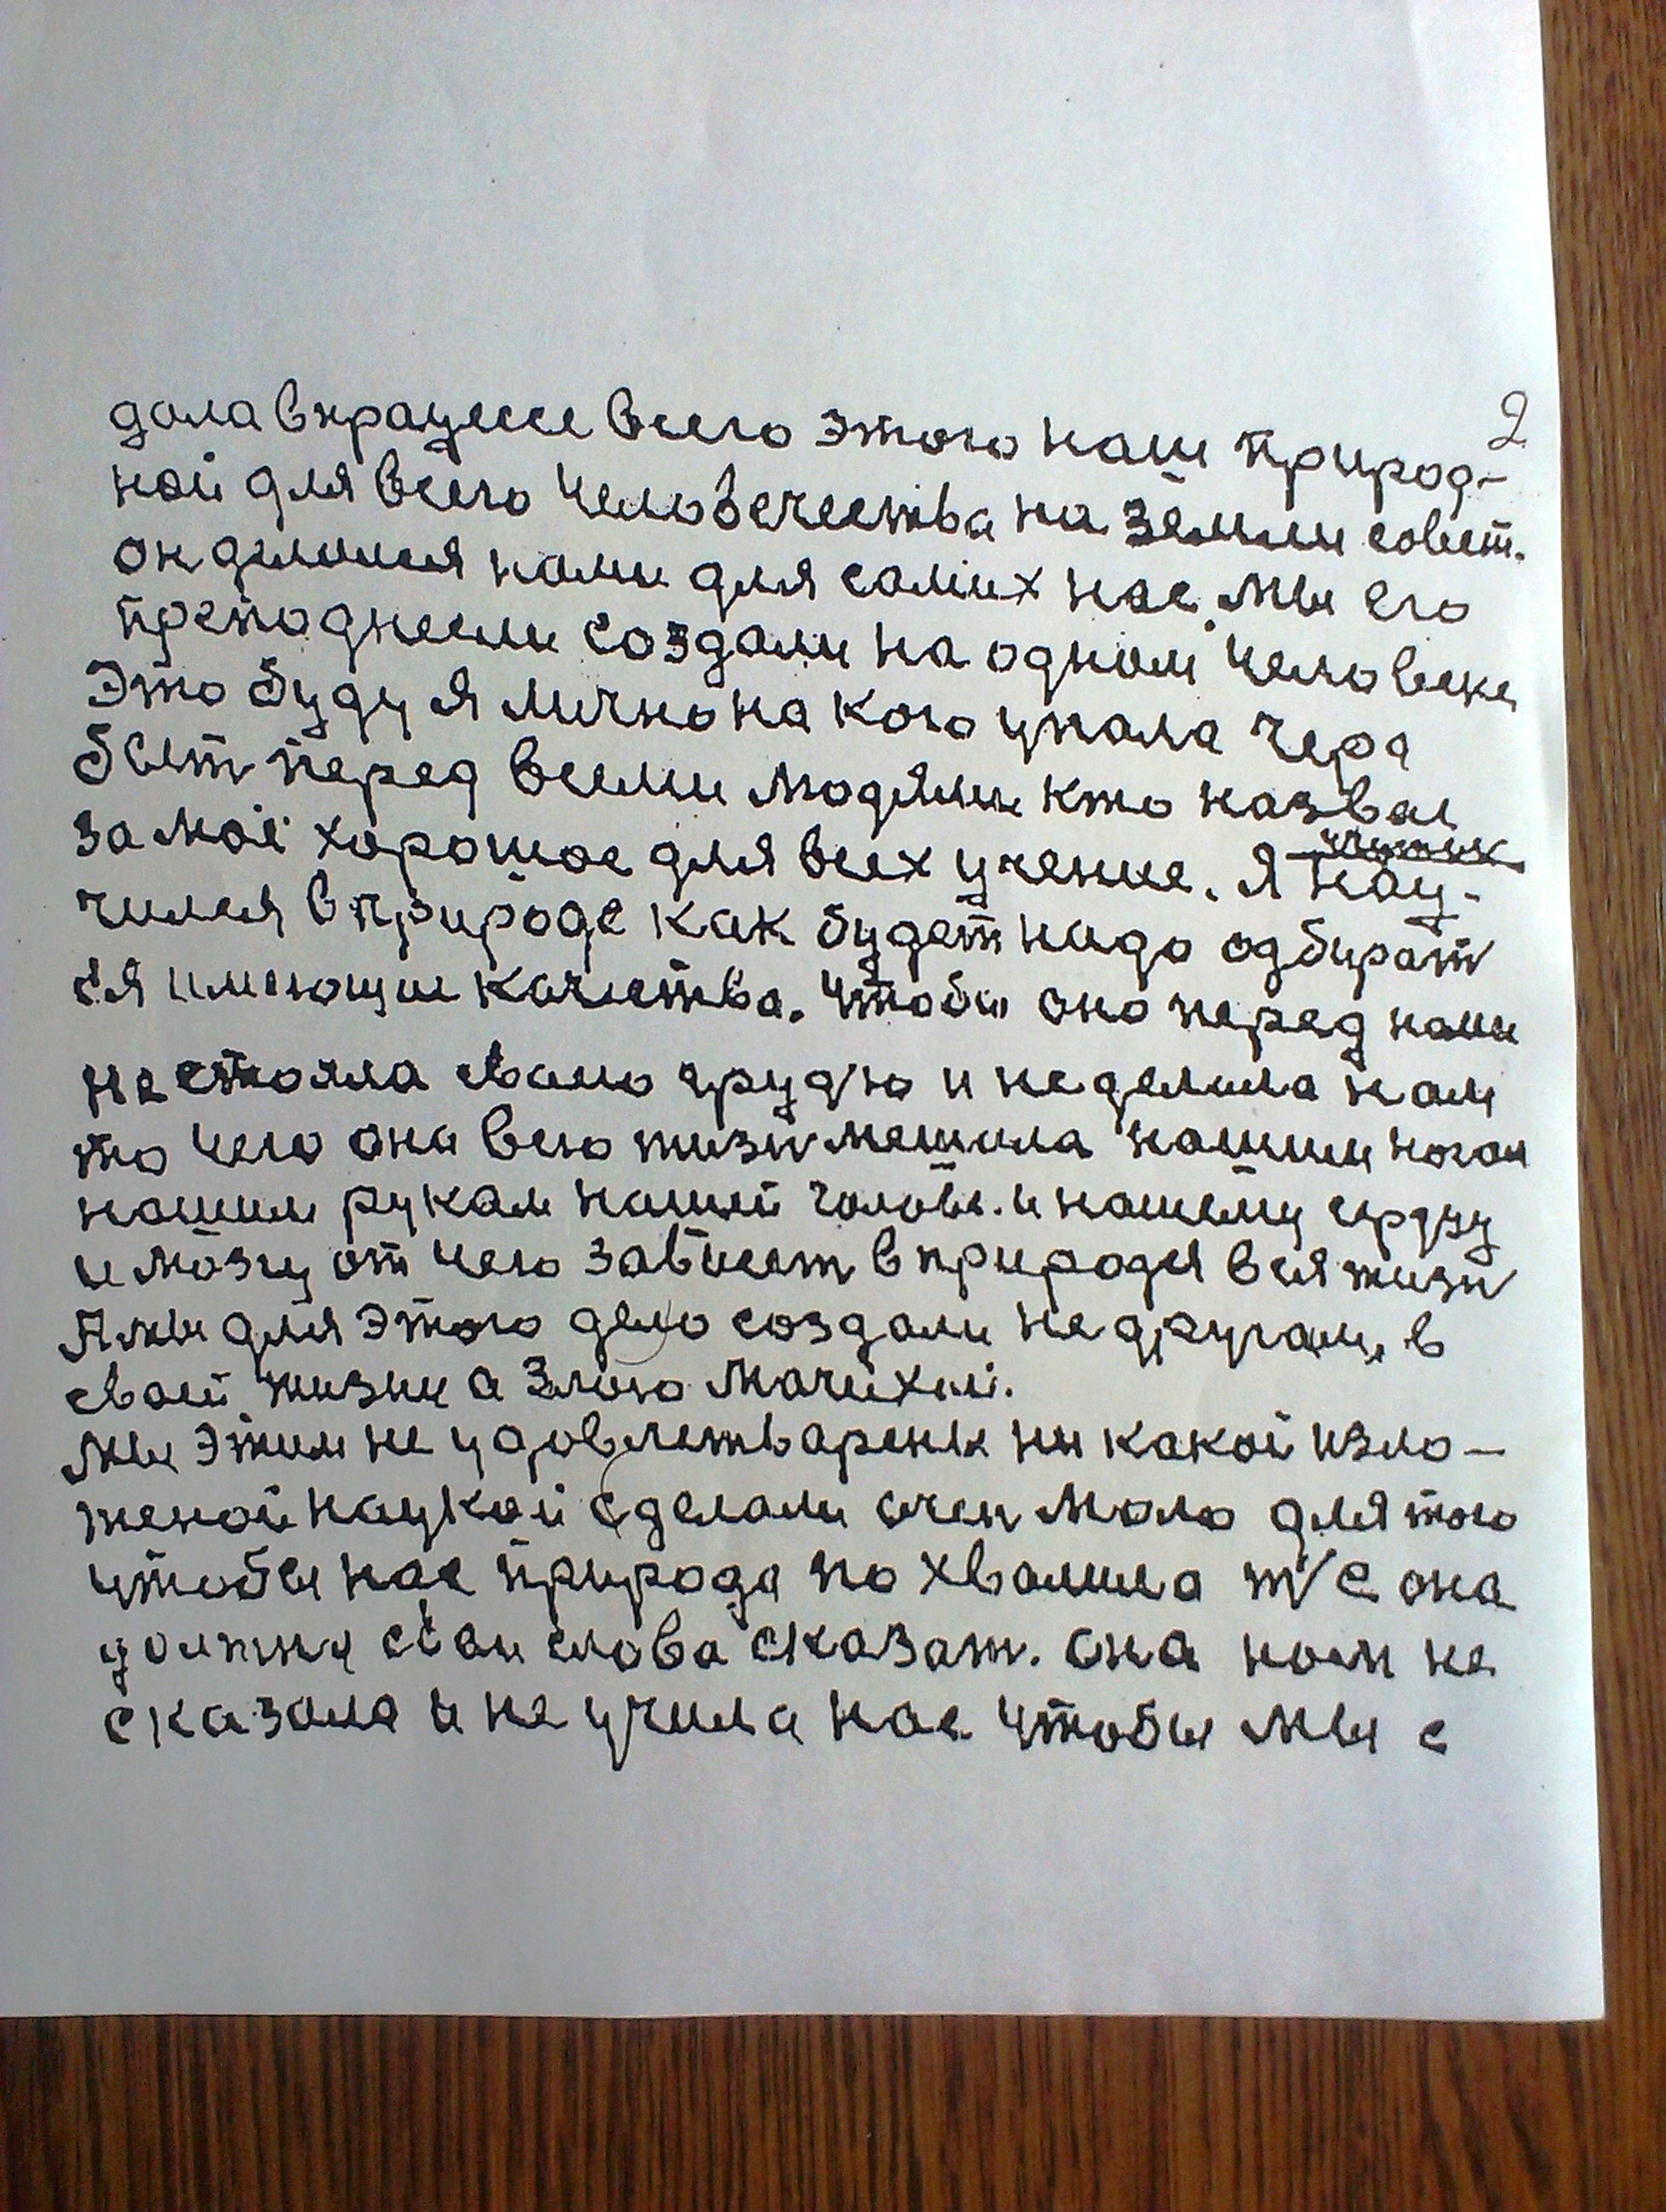 2
дала вкраце всего этого наш природ-
ной для всего человечества на земли совет.
он делился нами для самих нас. мы его
преподнесли создали на одном человеке
Это буду я лично на кого упала чере
перед всеми людями кто назвал
за моё хорошое для всех учение. Я нау-
чился в природе как будет надо одбират
ся имеющие качиства. Чтобы оно перед нами
не стояла сваию грудю и не делила нам
то чего она всю жизн мешала нашим ногам
нашим рукам нашей голове. и нашему серцу
и мозгу от чего зависет в природя вся жизн
А мы для этого дело создали не другам, в
сваей жизни а злою мачихой.
Мы этим не удовлетваренн ни какой изло-
женой наукой сделали очен мало для того
чтобы нас природа по хвалила т/е она
должна сваи слова сказат. она нам не
сказала и не учила нас чтобы мы с